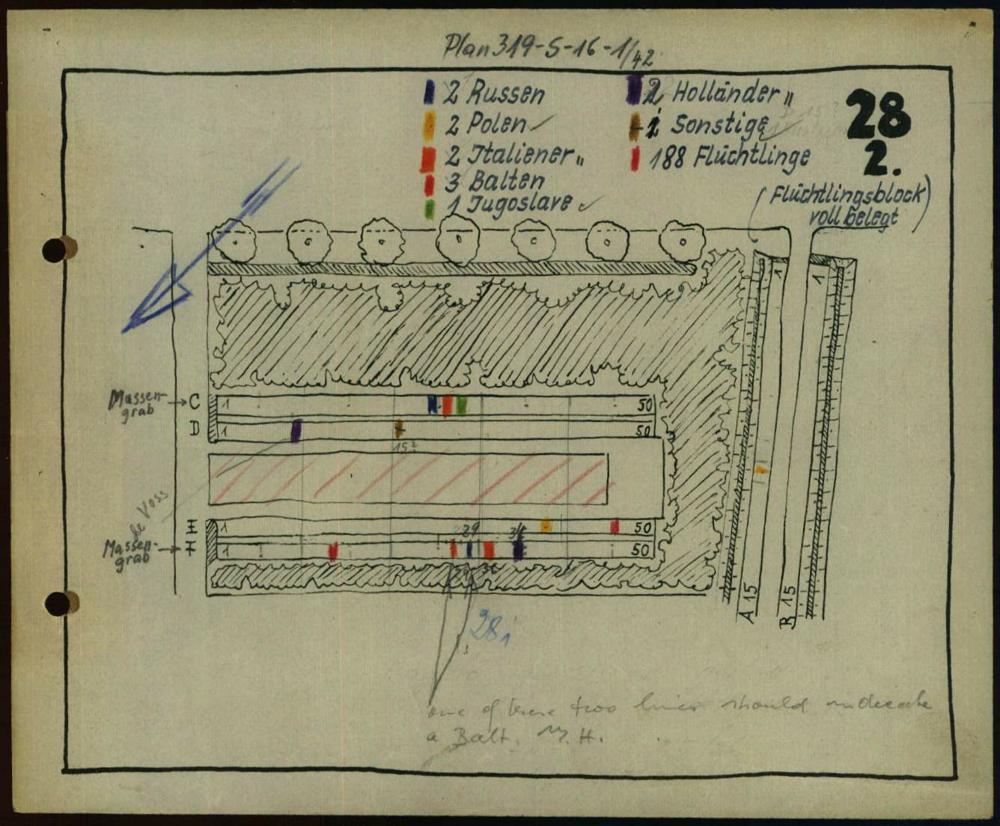 Plan 319-S-16-1/42
2 Russen
2 Polen ✓
2 Italiener "
3 Balten
1 Jugoslave ✓
2 Holländer "
1 Sonstige ✓
188 Flüchtlinge
28
2.
(Flüchtlingsblock
voll belegt)
1
1
Massen-
grab
C
1
50
D
1
50
15?
de Voss
E
1
29
34
50
Massen-
grab
F
1
50
A 15
R 15
28i
one of these two lines should indicate
a Balt. M. H.